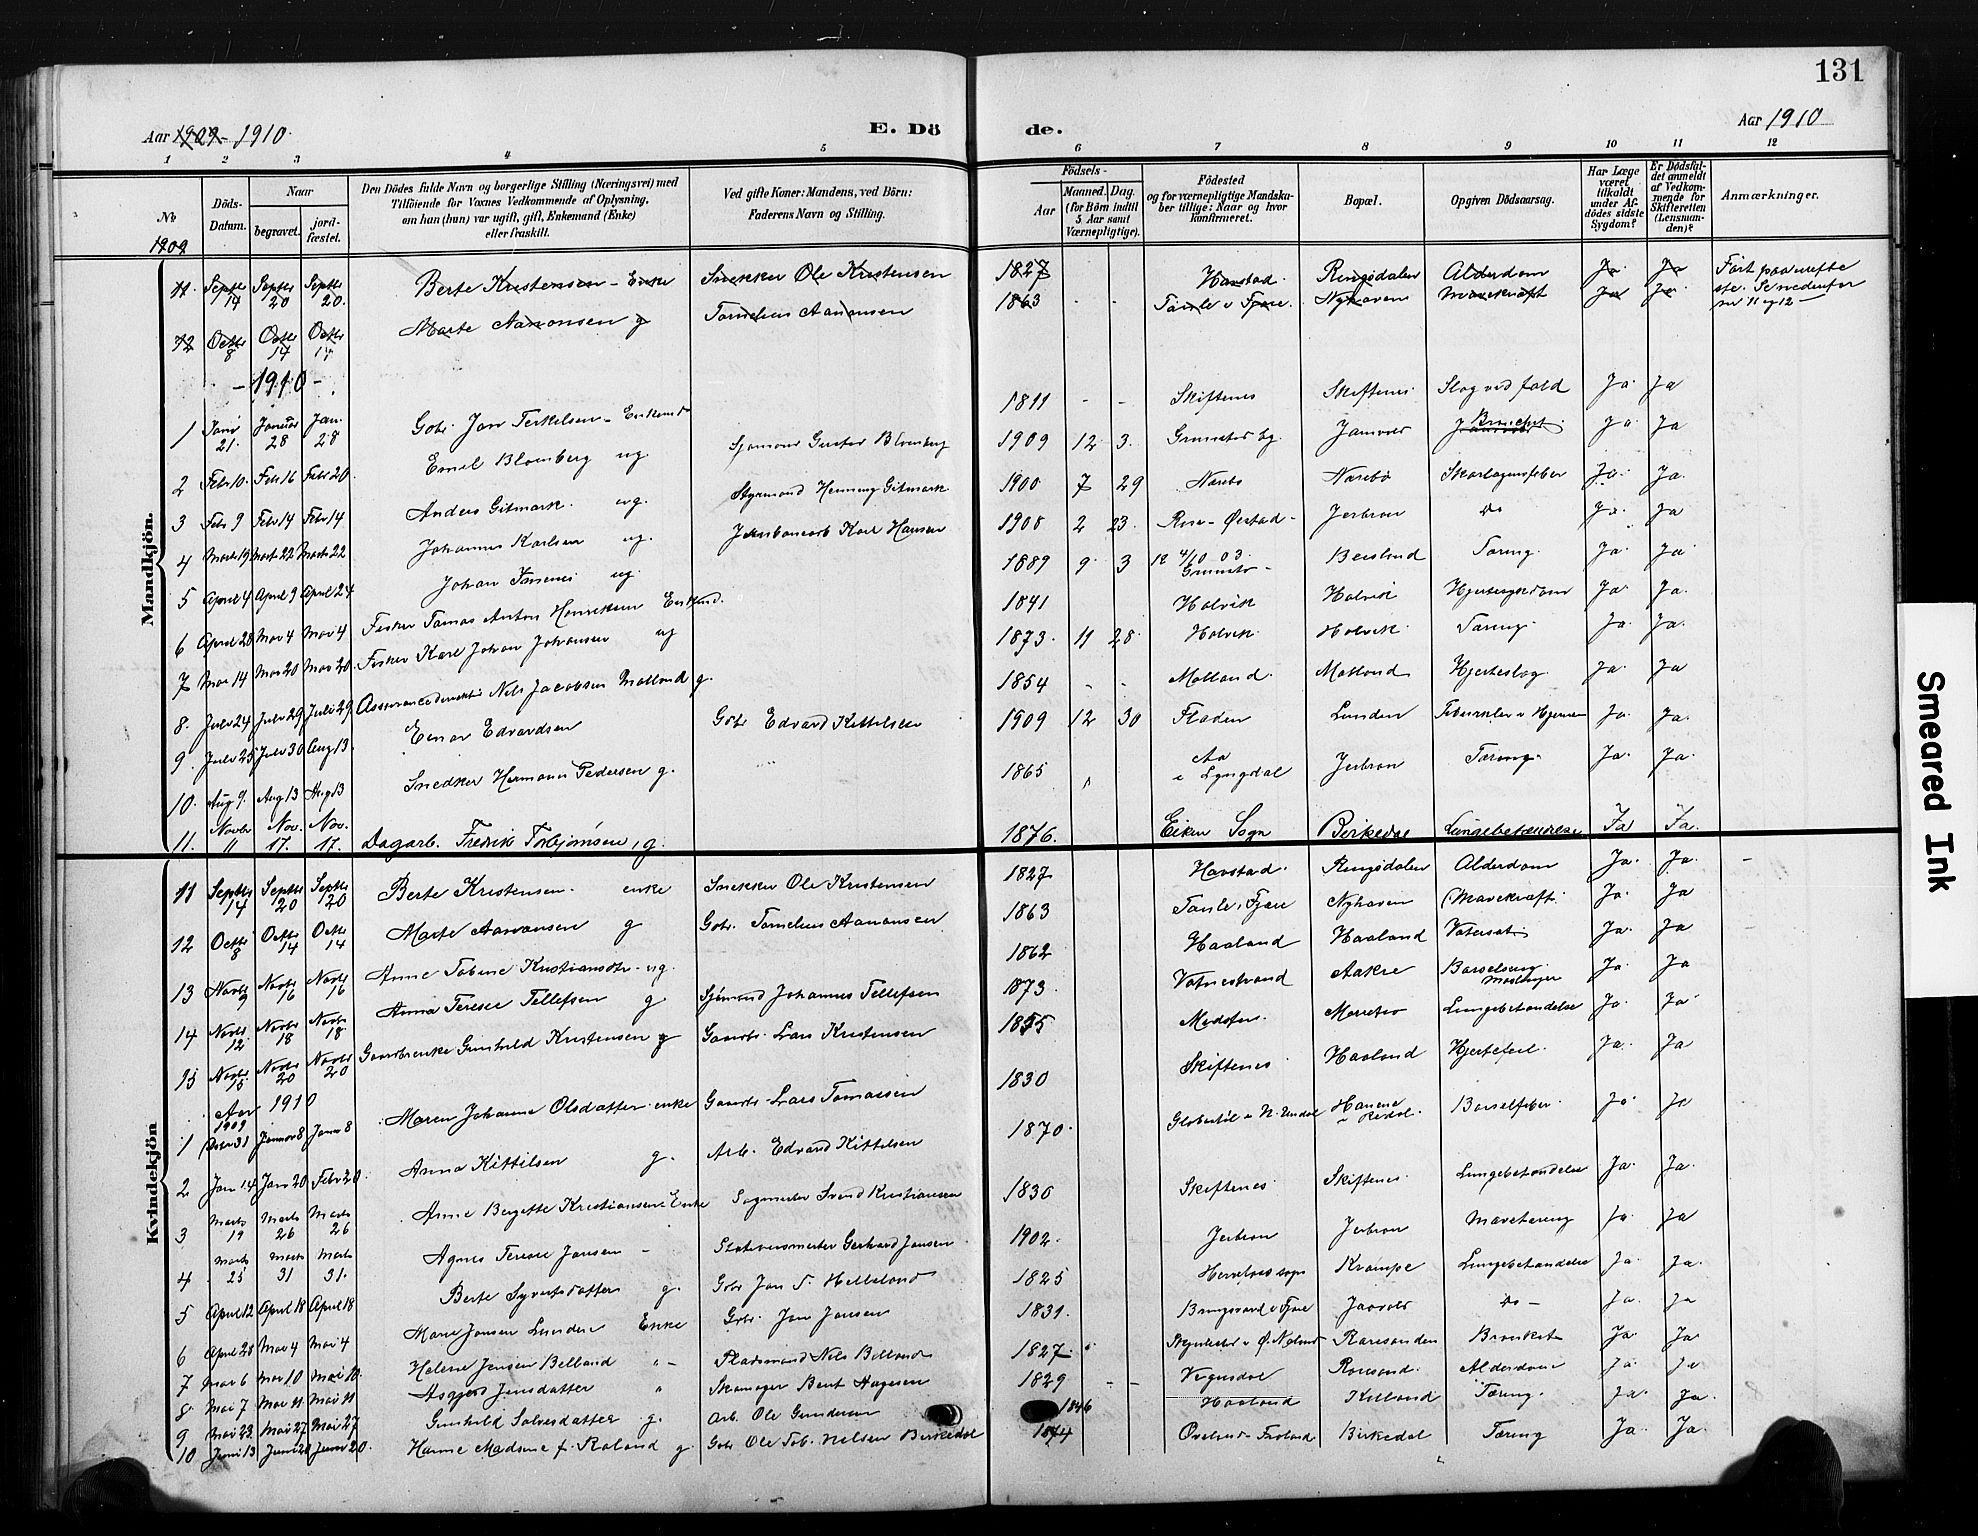 131
Aar 1909 - 1910. E. Dö de. Aar 1910
1 2 3 4 5 6 7 8 9 10 11 12
No Döds-Datum. Naar begravet. jord-fæstet. Den Dödes fulde Navn og borgerlige Stilling (Næringsvei) med Tilföiende for Voxnes Vedkommende af Oplysning, om han (hun) var ugift, gift, Enkemand (Enke) eller fraskilt. Ved gifte Koner: Mandens, ved Börn: Faderens Navn og Stilling. Födsels- Aar Maaned. Dag. (for Börn indtil 5 Aar samt Værnepligtige). Födested og for værnepligtige Mandska-ber tillige: Naar og hvor konfirmeret. Bopæl. Opgiven Dödsaarsag. Har Læge været tilkaldt under Af-dödes sidste Sygdom? Er Dödsfal-det anmeldt af Vedkom-mende for Skifteretten (Lensman-den)? Anmærkninger.
1909
Mandkjön.
11 Septbr 14 Septbr 20 Septbr 20. Berte Kristensen - Enke Snekker Ole Kristensen 1827 Havstad. Ringsdalen Alderdom Ja. Ja
12 Octbr 8 Octbr 14 Octbr 14 Marte Aanonsen g Tornelius Aanonsen 1863 - - Tanle i Fjære. Nyhaven Mavekræft Ja Ja. nr 11 og 12 -
- 1910 -
1 Janr 21. Januar 28 Jan. 28 Gbr. Jan Terkelsen - Enkemd 1811 - - Skiftenes Skiftenes Slag ved fald Ja. Ja
2 Febr 10. Febr 16 Febr 20. Emil Blomberg ug Sjømand Gustav Blomberg 1909 12 3. Grimstad by. Jamvold Bronchit Ja Ja
3 Febr 9 Febr 14 Febr 14 Anders Gitmark. ug. Styrmand Henning Gitmark 1900 7 29 Nærebø Nærebø Skarlagensfeber Ja. Ja.
4 Marts 19 Marts 22 Marts 22 Johannes Karlsen ug. Jernbanearb Karl Hansen 1908 2 23. Rise - Øiestad - Jerbron do Ja. Ja
5 April 4 April 9 April 24 Johan ug. 1889 9. 3 12 4/10 03. Grimstad - Beisland Tæring. Ja. Ja
6 April 28 Mai 4 Mai 4 Fisker Tomas Anton Henriksen Enkemd. 1841 Holvik Holvik Hjertesykdom Ja. Ja.
7 Mai 14 Mai 20 Mai 20. Fisker Karl Johan Johansen ug 1873. 11 28. Holvik. Holvik. Tæring. Ja. Ja.
8. Juli 24 Juli 29 Juli 29 Assurancedirektør Nils Jacobsen Molland g. 1854 - - Molland. Molland Hjerteslag Ja. Ja
9 Juli 25 Juli 30 Aug 13. Einar Edvardsen Gbr Edvard Kittilsen 1909 12 30 Fladen Lunden Tuberkler i Hjernen Ja. Ja.
10. Aug 9. Aug 13 Aug 13 Snedker Hermann Pedersen g. 1865 Aa i Lyngdal Jerbron Tæring. Ja. Ja.
11. Novbr 11 Nov. 17. Nov. 17. Dagarb. Fredrik Torbjørnsen, g. 1876. Eiken Sogn Birkedal Lungebetændelse Ja Ja.
Kvindekjön
11 Septbr 14 Septbr 20 Septbr 20 Berte Kristensen. enke Snekker Ole Kristensen 1827 Havstad. Ringsdalen Alderdom Ja. Ja. -
12 Octbr 8 Octbr 14 Octbr 14 Marte Aanonsen g Gbr. Tornelius Aanonsen 1863 Tanle i Fjære Nyhaven Mavekræft. Ja. Ja
13 Novbr 9 Novbr 16 Novbr 16 Anne Tobine Kristiansdtr. ug. 1862 Haaland Haaland Vatersot Ja. Ja
14 Novbr 12 Novbr 18 Novbr 18 Anna Terese Tellefsen g Sjömand Johannes Tellefsen 1873. Vatnestrand Aakre Ja. Ja
15 Novbr 15 Novbr 20 Novbr 20 Gaardbrenke Gunhild Kristensen Gaardbr. Lars Kristensen 1855 Lungebetændelse Ja. Ja
Aar 1910
1909
1 Decbr 31 Januar 8 Januar 8 Maren Johanne Olsdatter. enke Gaardbr. Lars Tomassen 1830 Skiftenes Haaland Hjertefeil. Ja. Ja
2 Jan 14 Jan 20 Febr 20. Anna Kittilsen g. Arb. Edvard Kittilsen 1870. Barselfeber. Ja. Ja
3 Marts 19 Marts 26 Marts 26 Anne Bergette Kristiansen Enke Svend Kristiansen 1830 Skiftenes. Skiftenes. Lungebetændelse Ja. Ja.
4 Marts 25 Marts 31 Marts 31. Agnes Terese Jansen - Stationsmester Gerhard Jansen 1902. Jerbron Jerbron Mavetæring Ja. Ja
5 April 12 April 18 April 18 Berte Syvertsdatter g. Gbr Jan T. Helleland 1825 Krampe Lungebetændelse Ja. Ja.
6 April 28 Mai 4 Mai 4 Marie Jansen Lunden Enke Gbr. Jan Jansen 1831. Bringsværd i Fjære Jaavold do - Ja. Ja
7 Mai 6 Mai 10 Mai 10. Helene Jensen Belland " - Pladsmand Nils Belland 1827. Roresanden Bronkit Ja. Ja.
8 Mai 7 Mai 11 Mai 11 Asgjerd Jensdatter " Skomager Bent Aagesen 1829 - - Vegusdal Roresand. Alderdom Ja. Ja
9 Mai 22 Mai 27 Mai 27 Gunhild Salvesdatter g. Arb. Ole Gundersen 1846 Haaland Killand Tæring. Ja. Ja.
10 Juni 13 Juni 20 Juni 20. Hanne Madsine f. Roland g Gbr Ole Tob. Nilsen Birkedal 1874 Froland Birkedal Tæring Ja. Ja.
Smeared Ink